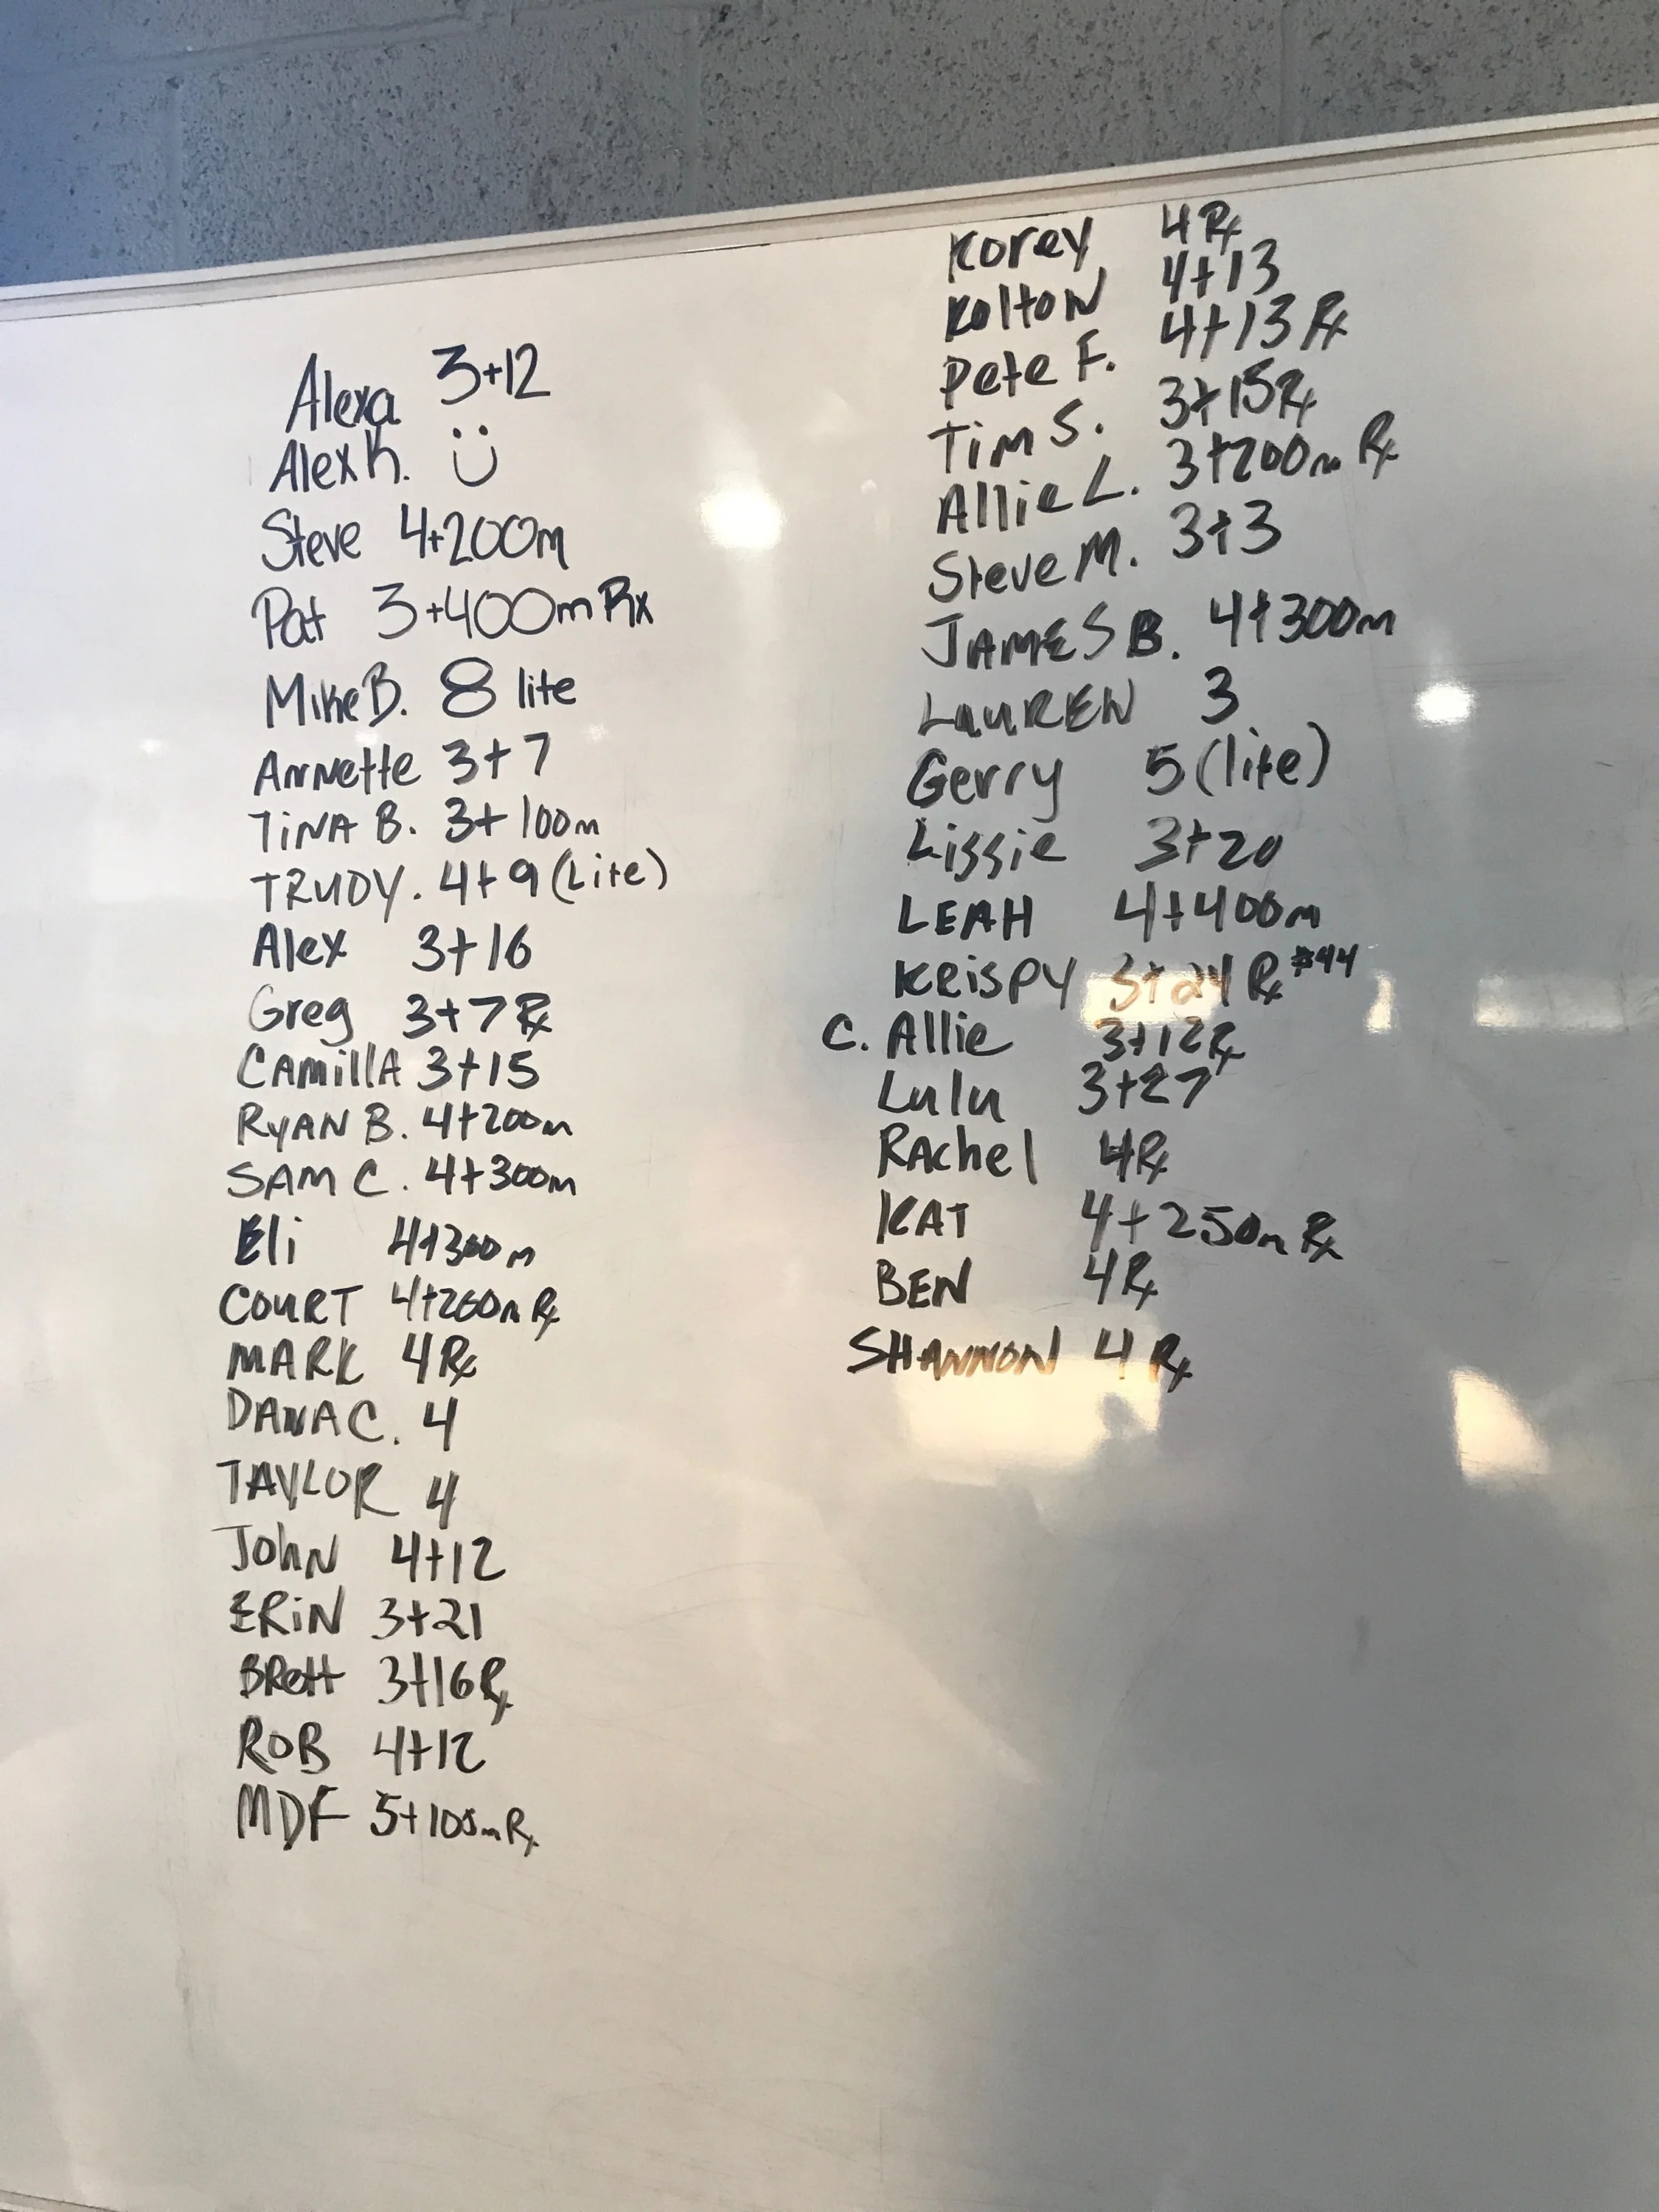 Alexa 3+12
Alex K. Ü
Steve 4+200m
Pat 3+400m Rx
Mike B. 8 lite
Annette 3+7
TINA B. 3+100m
TRUDY. 4+9 (Lite)
Alex 3+16
Greg 3+7 Rx
CAMillA 3+15
RyAN B. 4+200m
SAM C. 4+300m
Eli 4+300m
COURT 4+200m Rx
MARK 4 Rx
DANA C. 4
TAYLOR 4
JohN 4+12
ERiN 3+21
BRett 3+16 Rx
ROB 4+12
MDF 5+100m Rx
Korey 4 Rx
KoltoN 4+13
Pete F. 4+13 Rx
Tim S. 3+15 Rx
Allie L. 3+200m Rx
Steve M. 3+3
JAMES B. 4+300m
LAUREN 3
Gerry 5 (lite)
Lissie 3+20
LEAH 4+400m
KRisPY 3+24 Rx #44
C. Allie 3+12 Rx
Lulu 3+27
RAchel 4 Rx
KAT 4+250m Rx
BEN 4 Rx
SHANNON 4 Rx